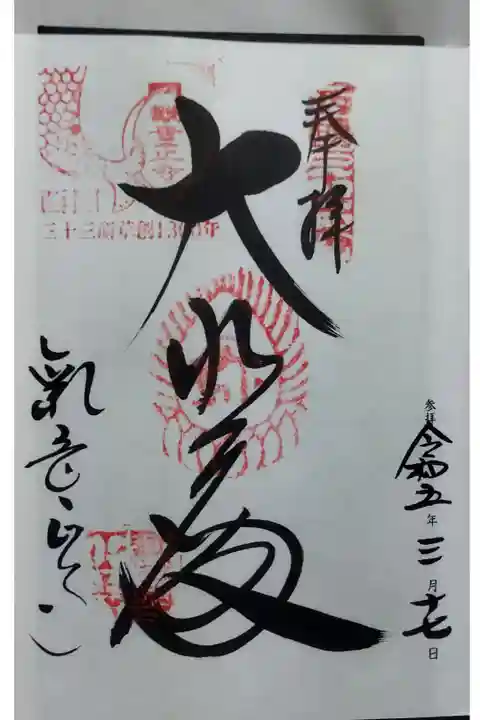 奉拝
参拝 令和五年三月十七日
大悲殿
西国
三十三所草創1300年
観音正寺